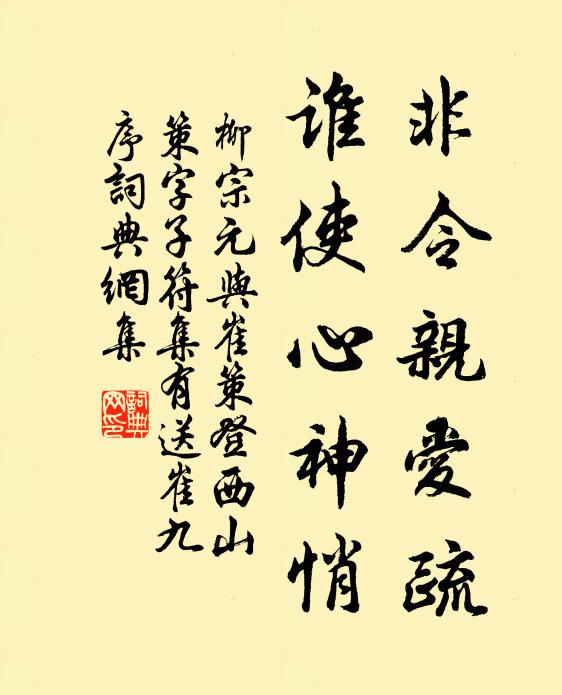 非令親愛疏
誰使心神悄
柳宗元與崔策登西山
策字子符集有送崔九
序詞典網集
詞典
网印